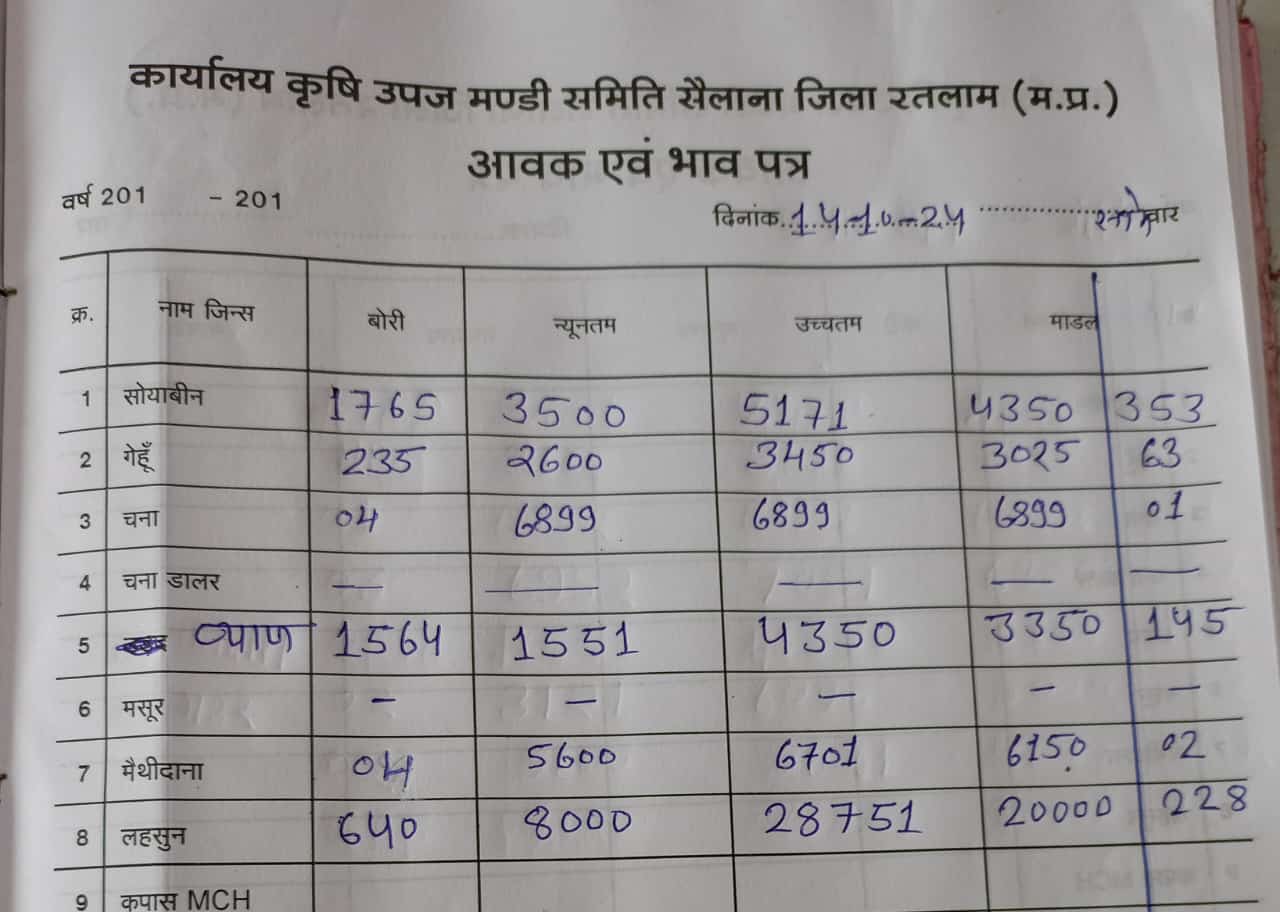 कार्यालय कृषि उपज मण्डी समिति सैलाना जिला रतलाम (म.प्र.)
आवक एवं भाव पत्र
वर्ष 201 - 201
दिनांक. 14-10-24 वार
क्र. नाम जिन्स बोरी न्यूनतम उच्चतम माडल
1 सोयाबीन 1765 3500 5171 4350 353
2 गेहूँ 235 2600 3450 3025 63
3 चना 04 6899 6899 6899 01
4 चना डालर — — — — —
5 प्याज 1564 1551 4350 3350 145
6 मसूर - - - - -
7 मैथीदाना 04 5600 6701 6150 02
8 लहसुन 640 8000 28751 20000 228
9 कपास MCH